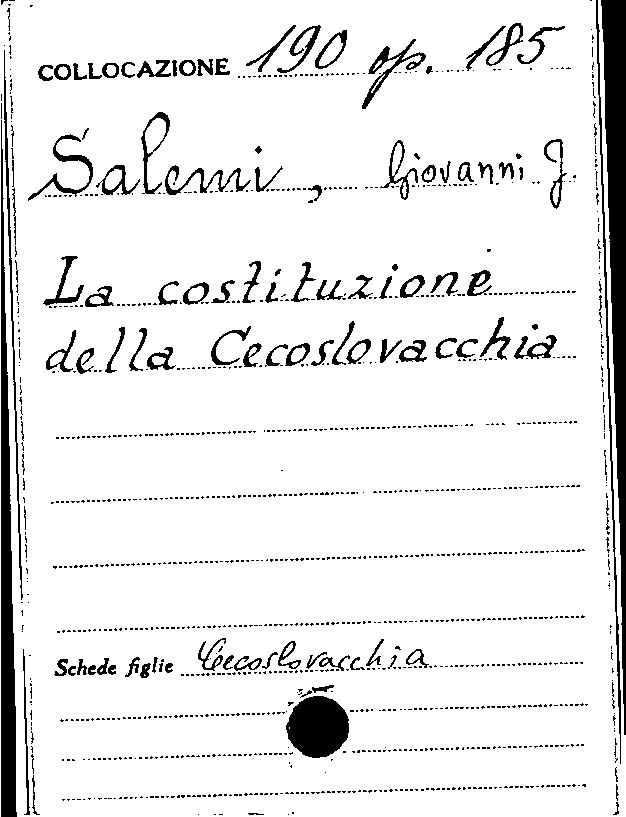 COLLOCAZIONE 190 op. 185
Salemi, Giovanni J.
La costituzione
della Cecoslovacchia
Schede figlie Cecoslovacchia